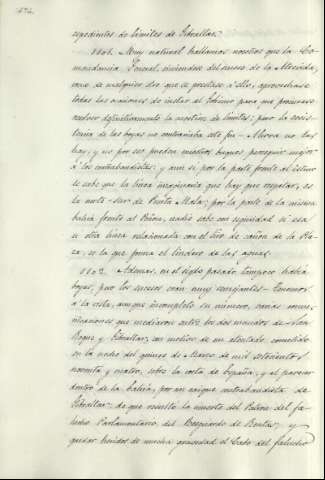 expedientes de límites de Gibraltar.
1801. Muy natural hallamos nosotros que la Co-
mandancia General, sirviéndose del suceso de la Atrevida,
como de cualquier otro que se prestase á ello, aprovechase
todas las ocasiones de instar al Gobierno para que procurase
resolver definitivamente la cuestion de límites; pero la exis-
tencia de las boyas no contrariaba este fin. Ahora no las
hay, y no por eso pueden nuestros buques perseguir mejor
á los contrabandistas; y aun si por la parte frente al istmo
se sabe que la linea imaginaria que hay que respetar, es
la norte-sur de Punta Mala; por la parte de la misma
bahía frente al Peñon, nadie sabe con seguridad si esa
ú otra linea relacionada con el tiro de cañon de la Pla-
za, es la que forma el lindero de las aguas.
1802. Ademas, en el siglo pasado tampoco habia
boyas, pero los sucesos eran muy semejantes. Tenemos
á la vista, aunque incompleto su número, varias comu-
nicaciones que mediaron entre los dos mandos de San
Roque y Gibraltar, con motivo de un atentado cometido
en la noche del quince de Marzo de mil setecientos
noventa y cuatro, sobre la costa de España, y al parecer
dentro de la bahía, por un buque contrabandista de
Gibraltar; de que resultó la muerte del Patron del fa-
lucho Parlamentario del Resguardo de Rentas, y
quedar heridos de mucha gravedad el Cabo del falucho